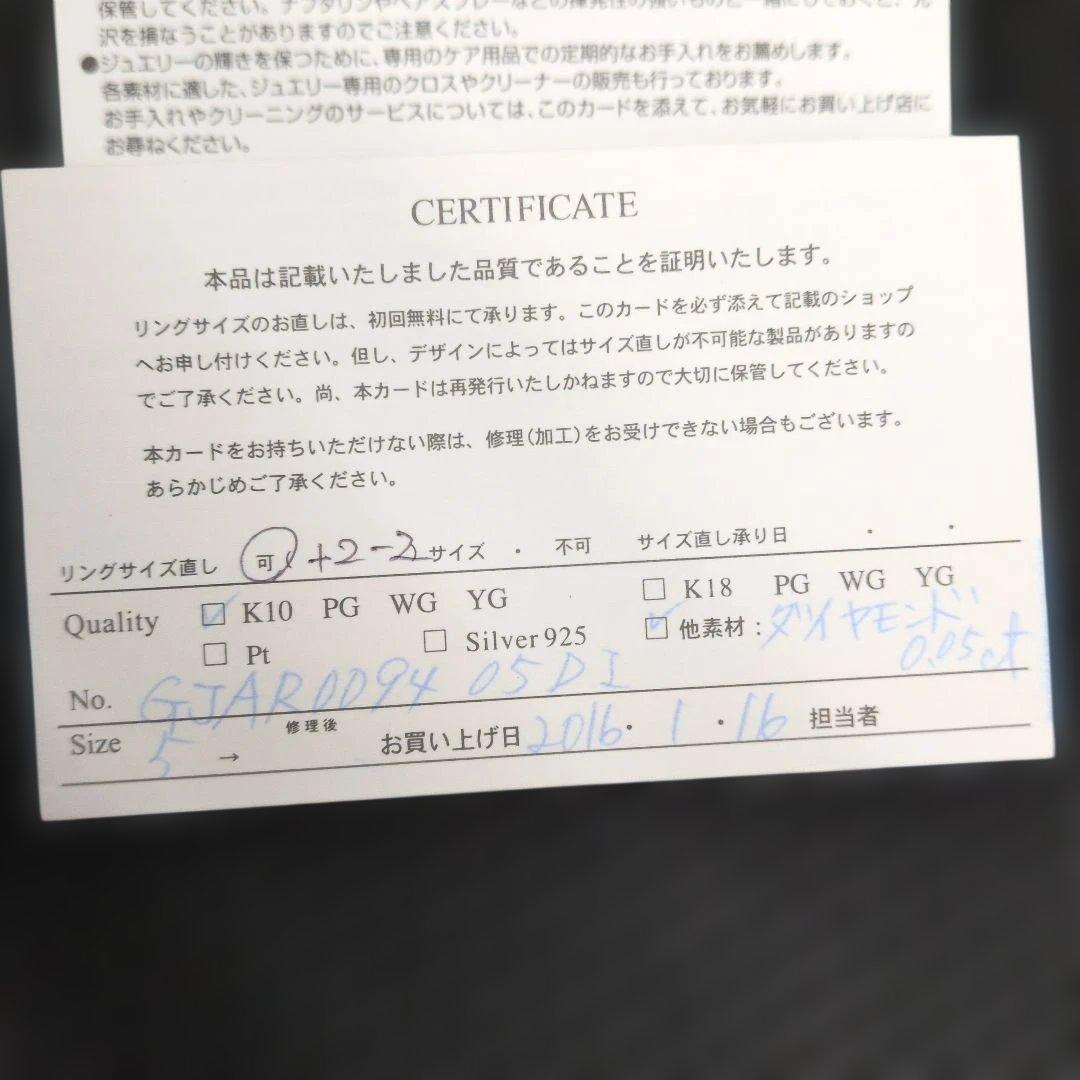 保管してください。ナフタリンやヘアスプレーなどの揮発性の強いものと一緒にしておくと、光
沢を損なうことがありますのでご注意ください。
●ジュエリーの輝きを保つために、専用のケア用品での定期的なお手入れをお薦めします。
各素材に適した、ジュエリー専用のクロスやクリーナーの販売も行っております。
お手入れやクリーニングのサービスについては、このカードを添えて、お気軽にお買い上げ店に
お尋ねください。
CERTIFICATE
本品は記載いたしました品質であることを証明いたします。
リングサイズのお直しは、初回無料にて承ります。このカードを必ず添えて記載のショップ
へお申し付けください。但し、デザインによってはサイズ直しが不可能な製品がありますの
でご了承ください。尚、本カードは再発行いたしかねますので大切に保管してください。
本カードをお持ちいただけない際は、修理(加工)をお受けできない場合もございます。
あらかじめご了承ください。
リングサイズ直し 可 +2-2 サイズ ・ 不可 サイズ直し承り日 ・ ・
Quality ☑ K10 PG WG YG □ K18 PG WG YG
□ Pt □ Silver 925 ☑ 他素材：ダイヤモンド
0.05ct
No. GJAR0094 05DI
Size 5 → 修理後 お買い上げ日 2016・1・16 担当者